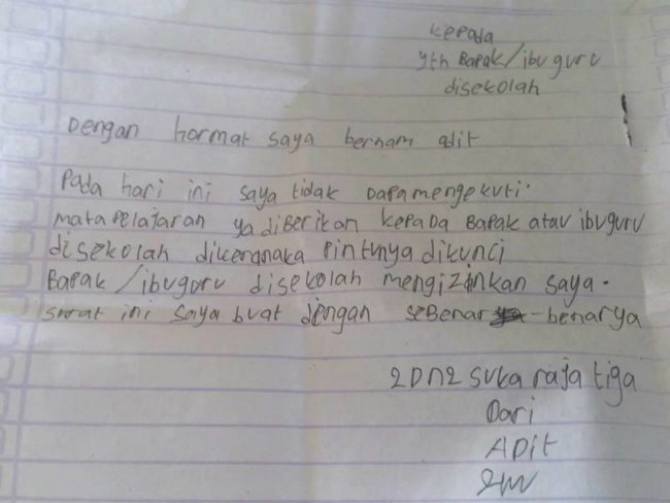 kepada
yth Bapak/ibu guru
disekolah
Dengan hormat saya bernam adit
Pada hari ini saya tidak Dapamengekuti.
mata Pelajaran ya diBerikan kepada Bapak atau ibuguru
disekolah dikeranaka Pintunya dikunci
Bapak /ibuguru disekolah mengizinkan saya.
surat ini saya buat dengan seBenar-benarya
2Dn2 suka raja tiga
Dari
ADit